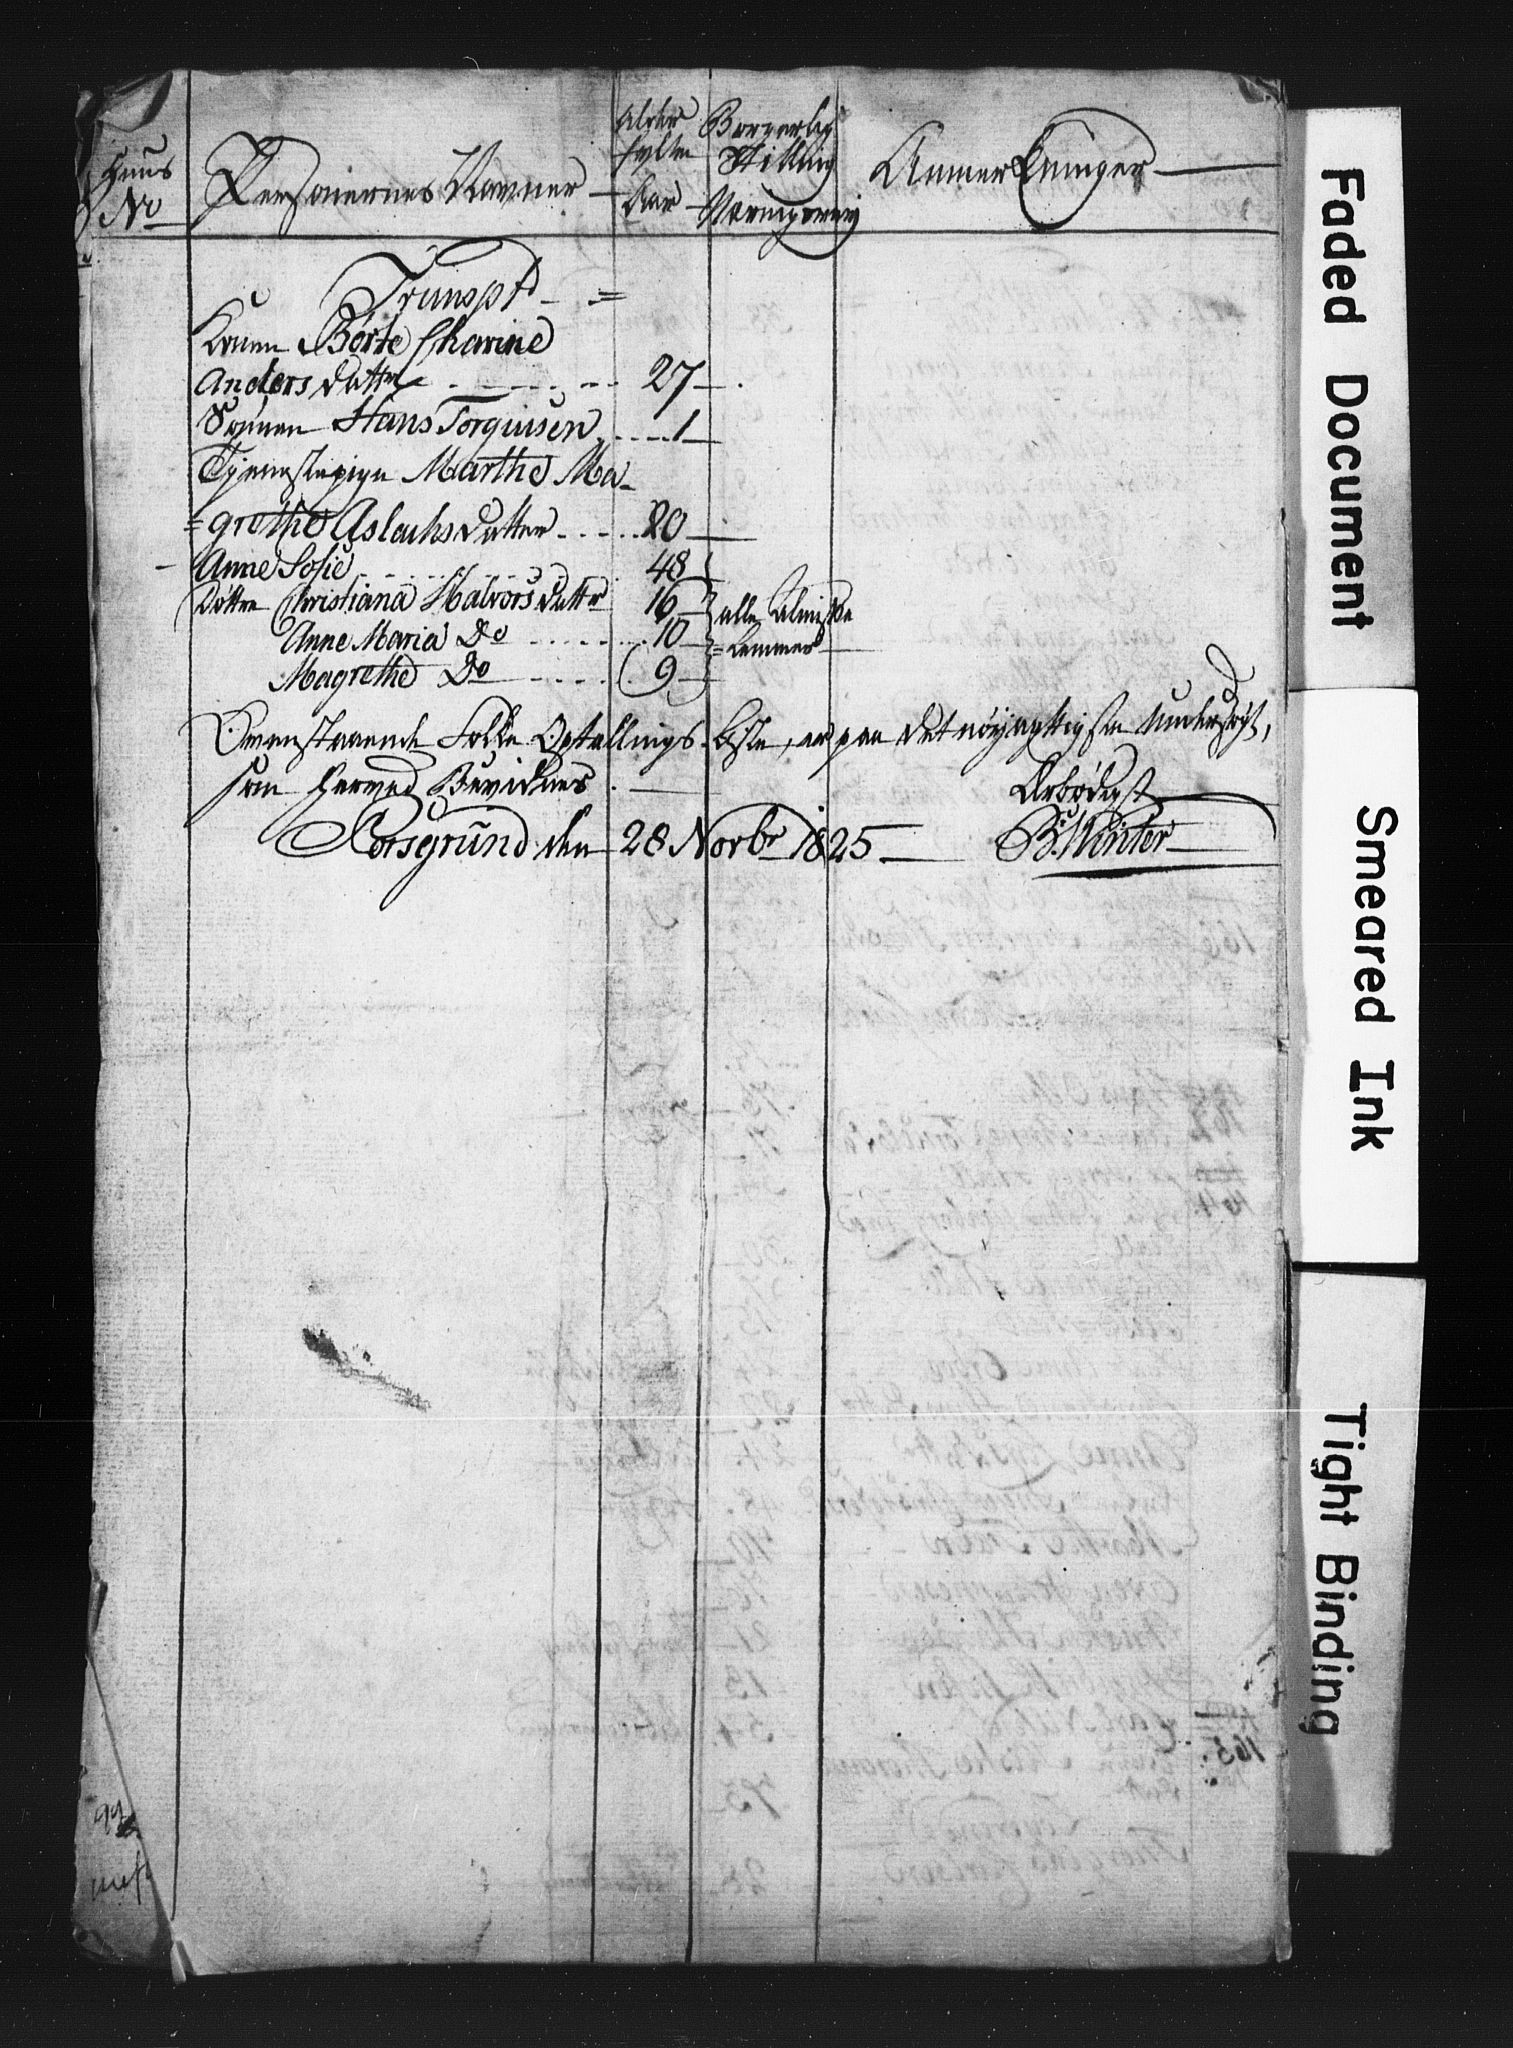 Huus No
Personernes Navner
Alder fylte Aar
Borgerlig Stilling Næringsvei
Anmerkninger
Transpt =
Konen Börte Chatrine
Anders Datter 27
Sönnen Hans Torguusen 1
Tjenestepige Marthe Ma-
=grethe Aslachs Datter 20
Anne Sofie 48
Döttre Christiana Halvors Dattr 16 alle Almisse
Anne Maria Do 10 =Lemmer
Magrethe Do 9
Ovenstaaende Folke Optællings Liste, er paa det nöyagtigste undersögt,
som herved Bevidnes. Ærbödigst
Porsgrund den 28 Novbr 1825 B. Winter
Faded Document
Smeared Ink
Tight Binding